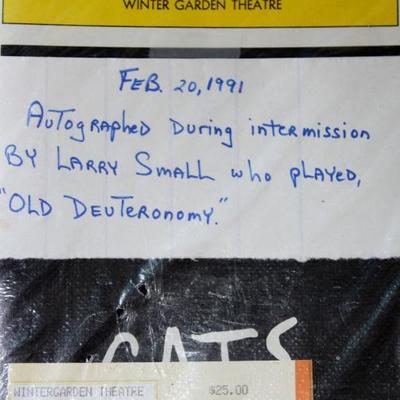 WINTER GARDEN THEATRE
FEB. 20, 1991
AUTographed During intermission
BY LARRY SMALL who pLAYed,
"OLD DEUTERONOMY."
CATS
WINTERGARDEN THEATRE $25.00